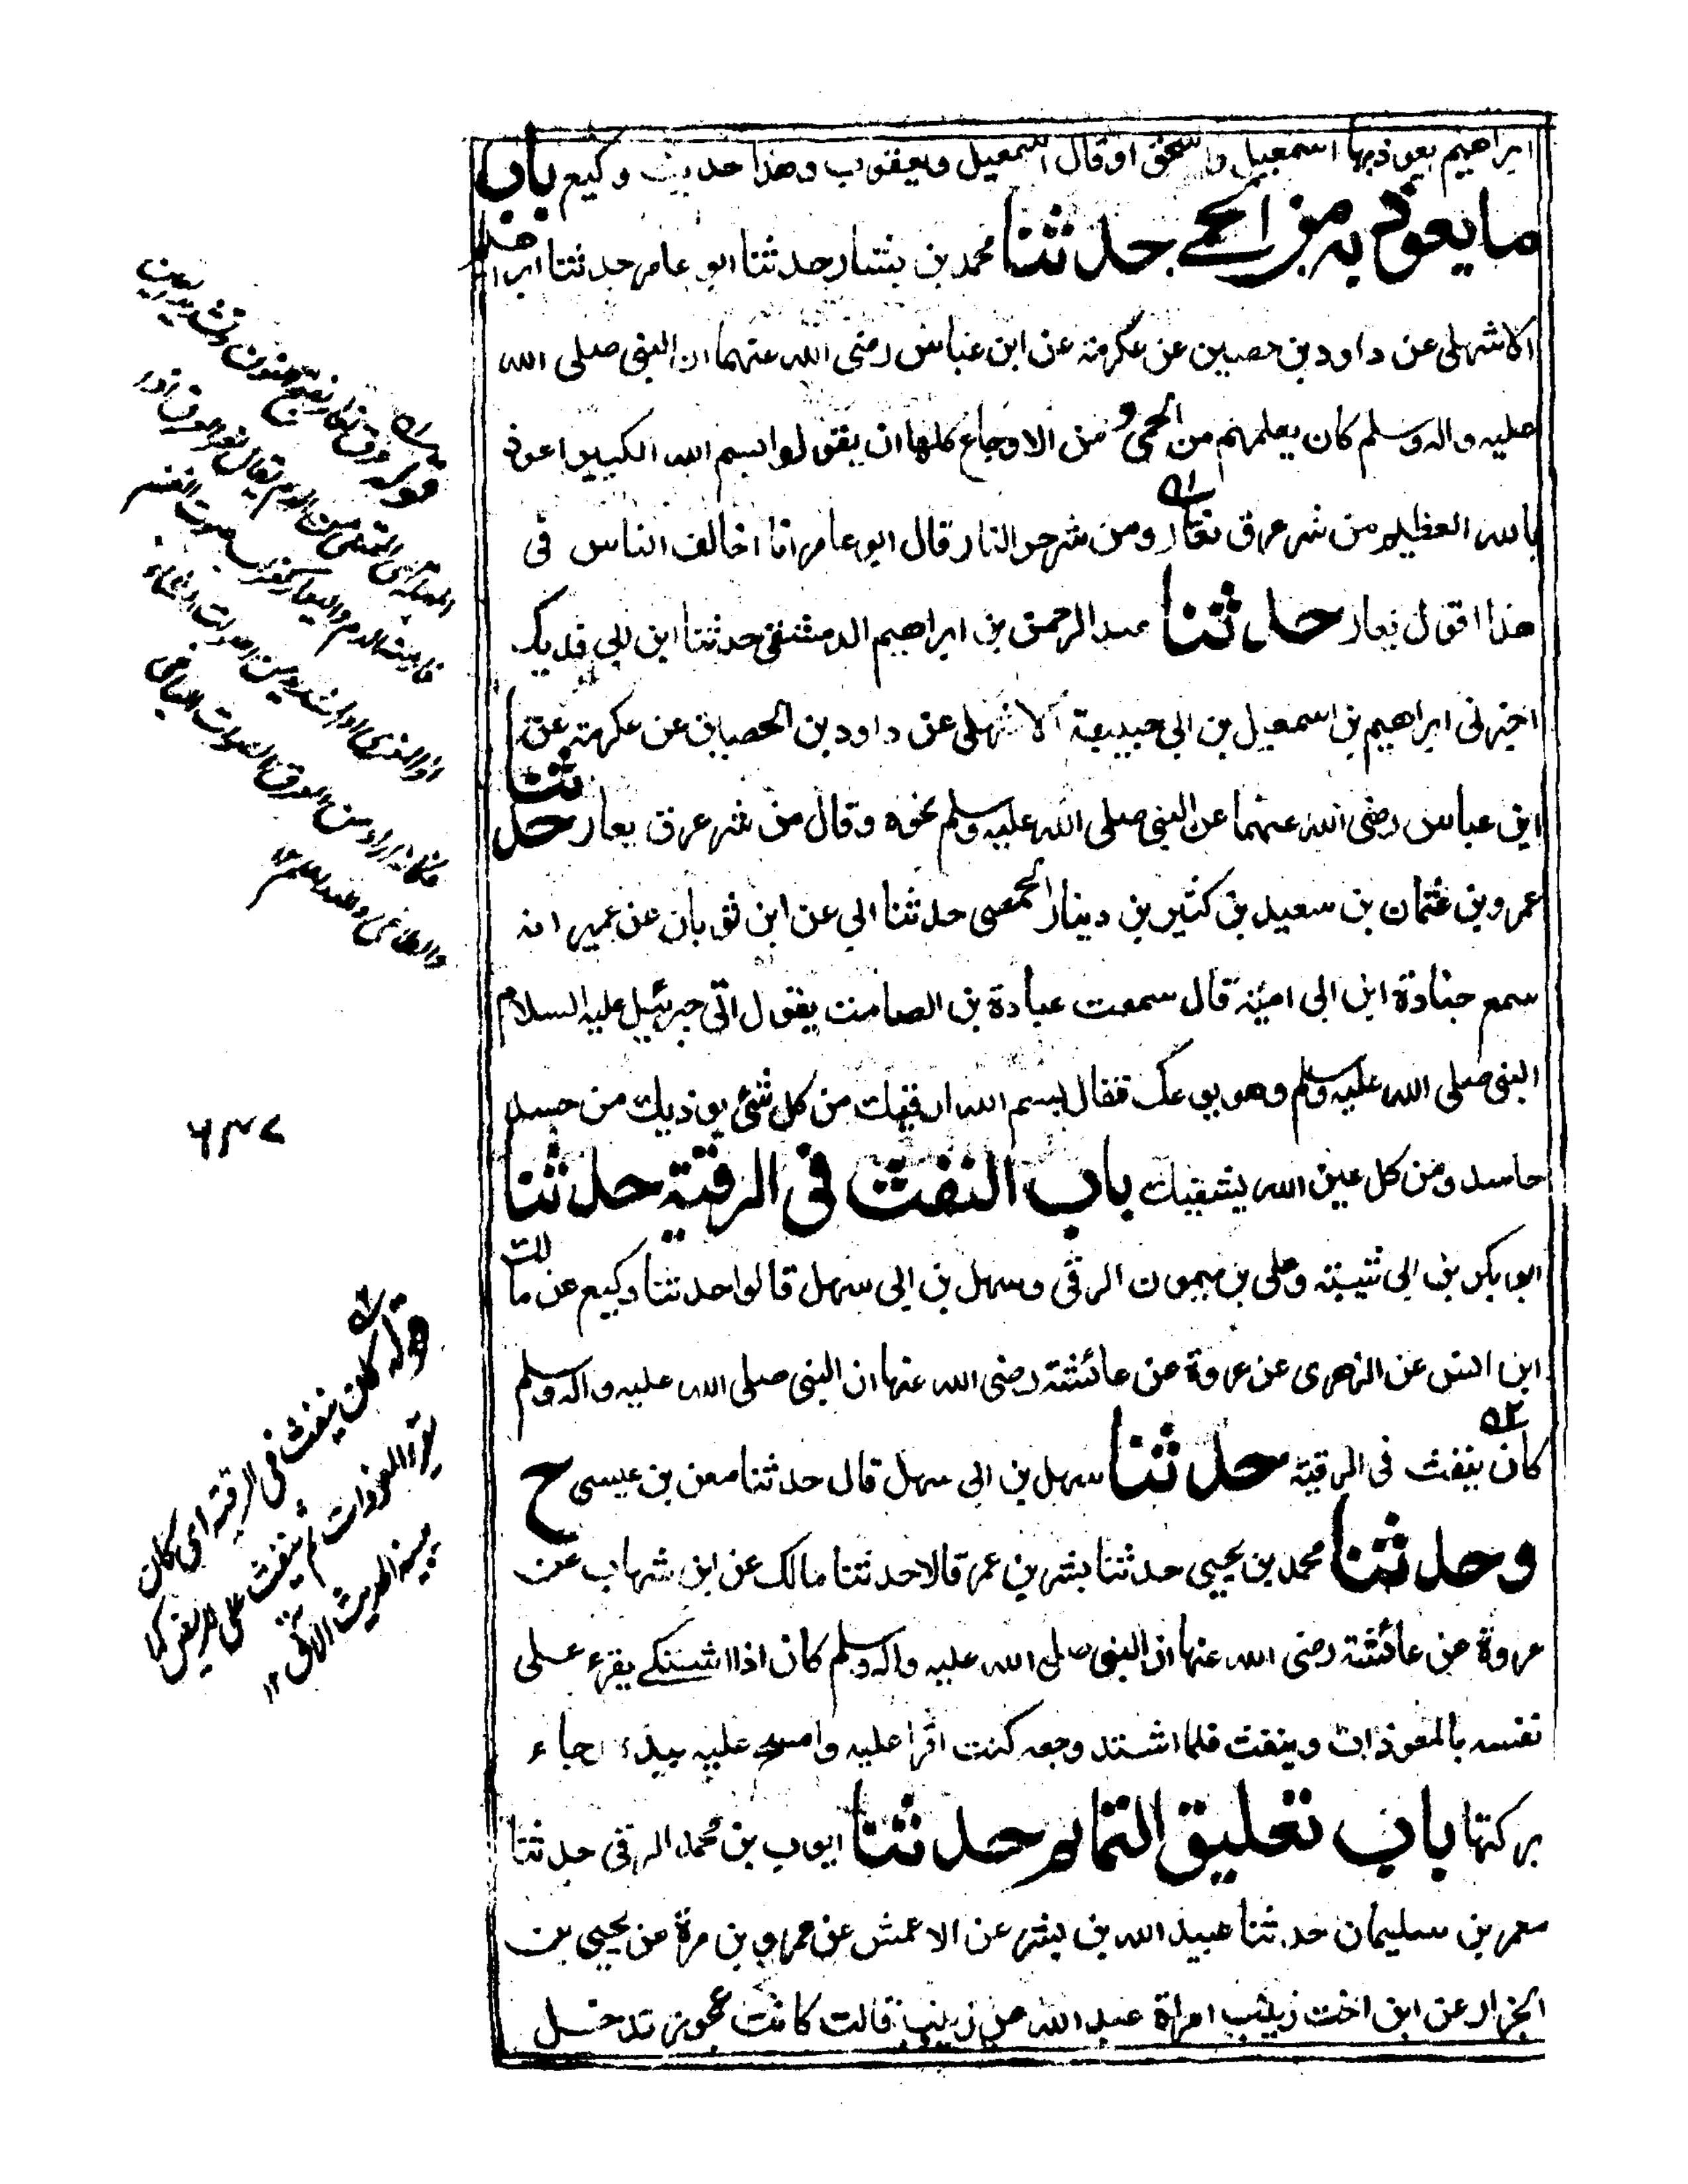 ابراهيم يعوذ بها اسمعيل واسحق او قال اسمعيل ويعقوب وهذا حديث وكيع باب
ما يعوذ به من الحمى حدثنا محمد بن بشار حدثنا ابو عامر حدثنا ابراهيم
الاشهلى عن داود بن حصين عن عكرمة عن ابن عباس رضى الله عنهما ان النبى صلى الله
عليه واله وسلم كان يعلمهم من الحمى و من الاوجاع كلها ان يقولوا بسم الله الكبير اعوذ
بالله العظيم من شر عرق نعار ومن شر حر النار قال ابو عامر انا اخالف الناس فى
هذا اقول يعار حدثنا عبد الرحمن بن ابراهيم الدمشقى حدثنا ابن ابى فديك
اخبرنى ابراهيم بن اسمعيل بن ابى حبيبة الاشهلى عن داود بن الحصين عن عكرمة عن
ابن عباس رضى الله عنهما عن النبى صلى الله عليه وسلم نحوه وقال من شر عرق يعار حدثنا
عمرو بن عثمان بن سعيد بن كثير بن دينار الحمصى حدثنا ابى عن ابن ثوبان عن عمير انه
سمع جنادة ابن ابى امية قال سمعت عبادة بن الصامت يقول اتى جبرئيل عليه السلام
النبى صلى الله عليه وسلم وهو يوعك فقال بسم الله ارقيك من كل شئ يوذيك من حسد
حاسد ومن كل عين الله يشفيك باب النفث فى الرقية حدثنا
ابو بكر بن ابى شيبة وعلى بن ميمون الرقى وسهل بن ابى سهل قالوا حدثنا وكيع عن مالك
ابن انس عن الزهرى عن عروة عن عائشة رضى الله عنها ان النبى صلى الله عليه واله وسلم
كان ينفث فى الرقية حدثنا سهل بن ابى سهل قال حدثنا معن بن عيسى ح
وحدثنا محمد بن يحيى حدثنا بشر بن عمر قالا حدثنا مالك عن ابن شهاب عن
عروة عن عائشة رضى الله عنها ان النبى صلى الله عليه واله وسلم كان اذا اشتكے يقرء على
نفسه بالمعوذات وينفث فلما اشتد وجعه كنت اقرا عليه وامسح عليه بيده رجاء
بركتها باب تعليق التمائم حدثنا ايوب بن محمد الرقى حدثنا
معمر بن سليمان حدثنا عبيد الله بن بشر عن الاعمش عن عمرو بن مرة عن يحيى بن
الجزار عن ابن اخت زينب امراة عبد الله عن زينب قالت كانت عجوز تدخل
٦٣٧
قوله كان ينفث فى الرقية اى كان
يقرء المعوذات ثم ينفث على المريض كما
يبينه الحديث الاتى ١٢